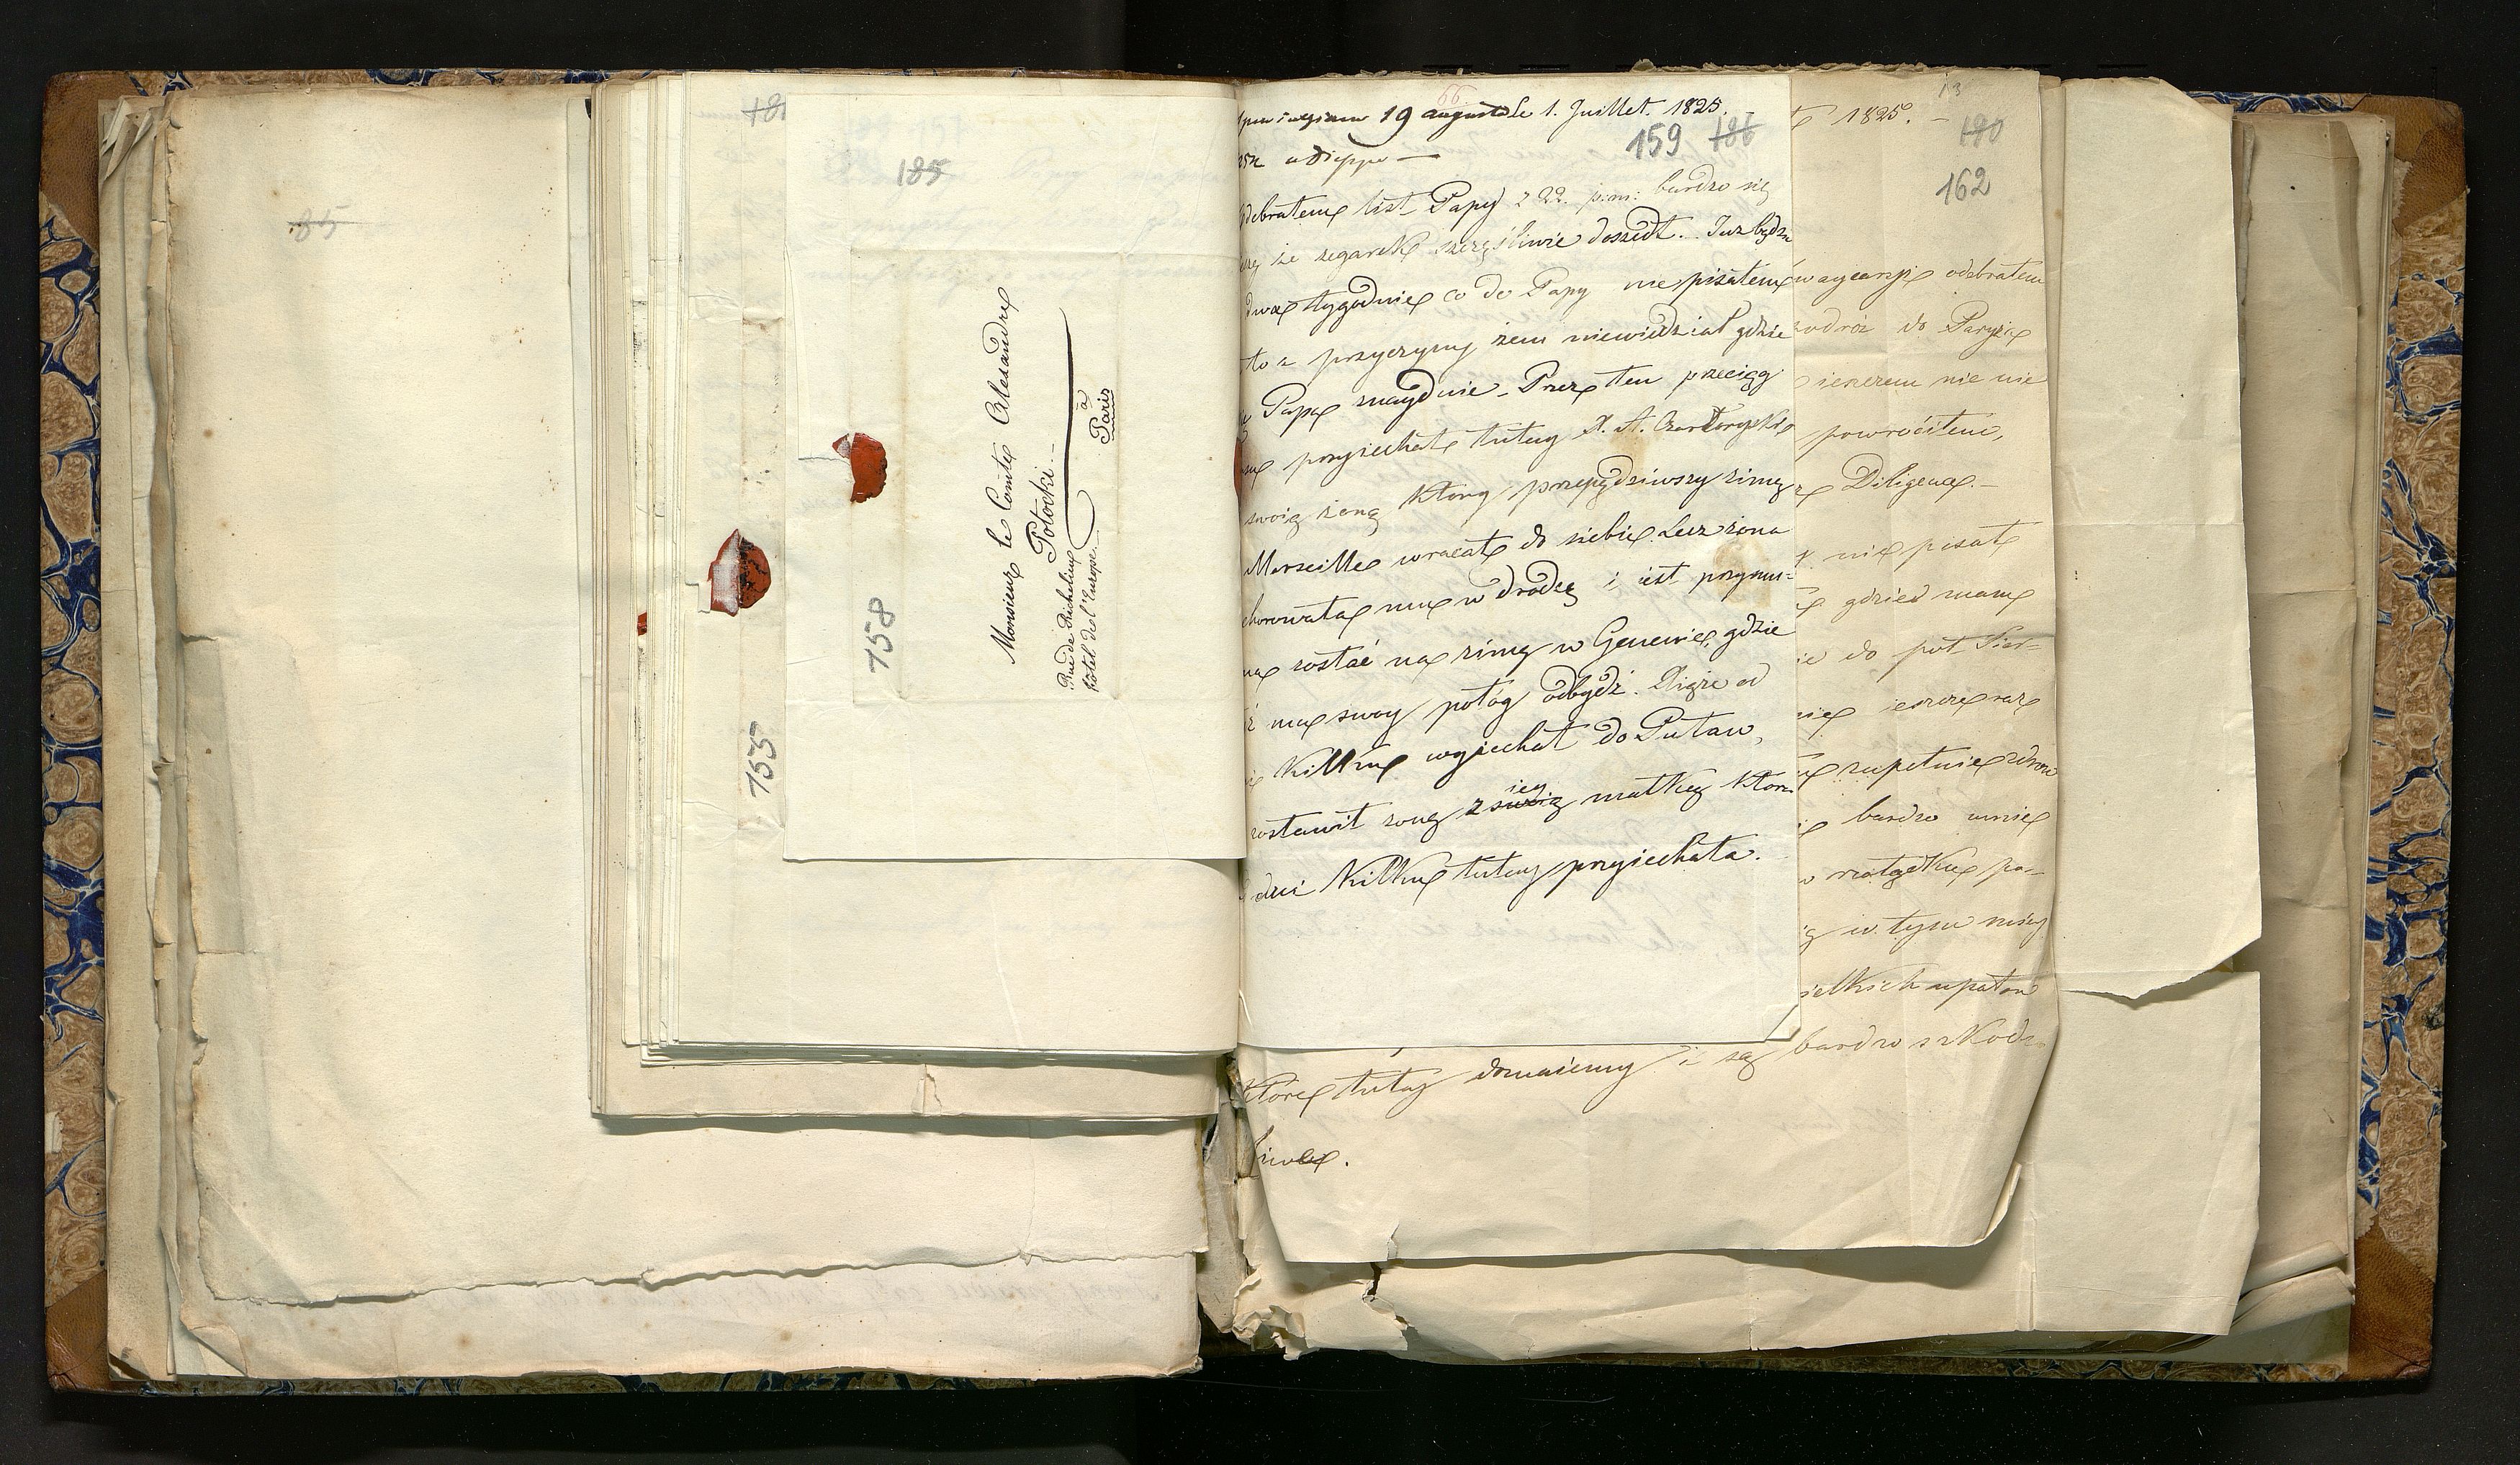 85
181
185
Monsieur le Comte Alexandre
Potocki. -
Rue de Richelieu
hotel de l'Europe. -
à
Paris
158
155
66
19 augusta le 1. Juillet. 1825. -
159 186
a Dieppe —
odebratem list Papy z 22. p.m: bardzo się
że zegarek szczęśliwie doszedł. Juz będzie
dwa tygodnie co do Papy nie pisałem
to z przyczyny żem niewiedział gdzie
Papa znayduie. Przez ten przeciąg
przyiechał tutay X. A. Czartoryski,
swoią żoną który przepędziwszy zimę
Marseille wracał do siebie. Lecz żona
chorowała mu w drodze i iest przymu=
zostać na zimę w Genewie, gdzie
ma swoy połóg odbydź. Xiąże od
kilku wyiechał do Puław,
zostawił żonę z swoią iey matką która
dni kilku tutay przyiechała.
13
1825. -
190
162
odebratem
podróż do Paryża
ieszczem nic nie
powróciłem,
Diligence. -
nie pisał
gdzieś mam
do pół Sier=
ieszcze raz
zupełnie zdrow
bardzo mnie
w żołądku po=
w tym mieś
wielkich upałow
które tutay doznaiemy i są bardzo szkod=
liwe.